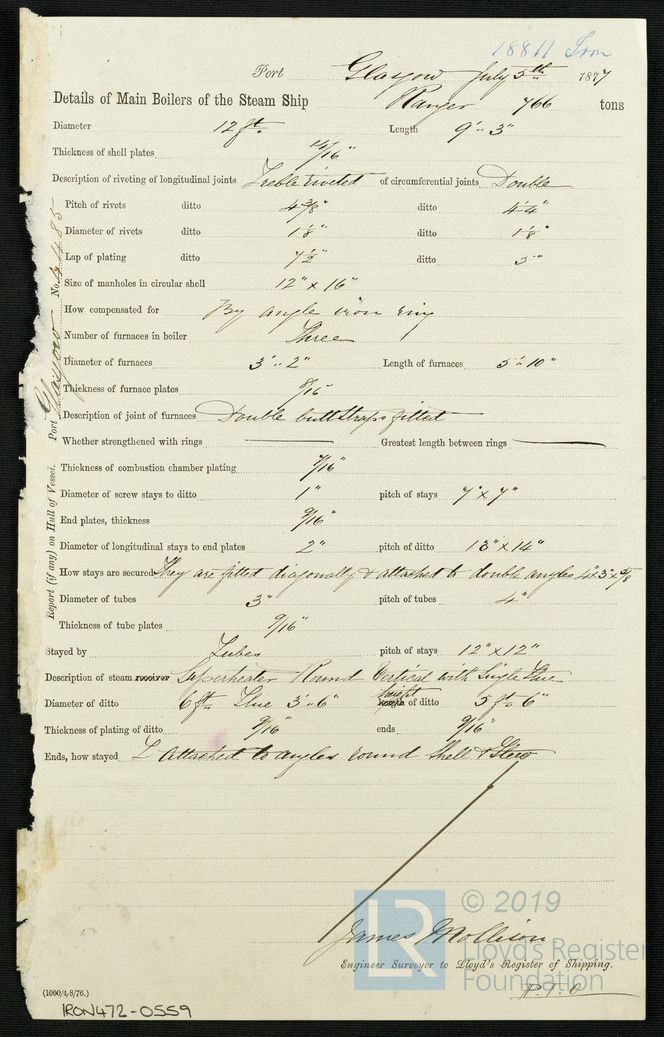 18811 Iron
Port Glasgow July 5th 1877
Details of Main Boilers of the Steam Ship Ranger 766 tons
Diameter 12 ft. Length 9'.. 3"
Thickness of shell plates /16"
Description of riveting of longitudinal joints Treble riveted of circumferential joints Double
Pitch of rivets ditto 4 3/8" ditto
Diameter of rivets ditto 1 1/8" ditto 1 1/8"
Lap of plating ditto 7 1/2" ditto 5"
Size of manholes in circular shell 12" x 16"
How compensated for By angle iron ring
Number of furnaces in boiler Three
Diameter of furnaces 3'.. 2" Length of furnaces 5'.. 10"
Thickness of furnace plates 8/16"
Description of joint of furnaces Double butt straps fitted
Whether strengthened with rings Greatest length between rings
Thickness of combustion chamber plating 7/16"
Diameter of screw stays to ditto 1" pitch of stays 7" x 7"
End plates, thickness 9/16"
Diameter of longitudinal stays to end plates 2" pitch of ditto 13" x 14"
How stays are secured They are fitted diagonally & attached to double angles 4" x 3" x 5/8
Diameter of tubes 3" pitch of tubes 4"
Thickness of tube plates 9/16"
Stayed by Tubes pitch of stays 12" x 12"
Description of steam receiver Superheater Round Vertical with Single Flue
Diameter of ditto 6 ft. Flue 3'.. 6" height of ditto 5 ft. 6"
Thickness of plating of ditto 9/16" ends 9/16"
Ends, how stayed Attached to angles round Shell &
James Mollison
Engineer Surveyor to Lloyd's Register of Shipping.
P.T.O
(1000/4/8/76.)
IRON472-0559
Report (if any) on Hull of Vessel. Port Glasgow No.
LR © 2019
Lloyd's Register
Foundation